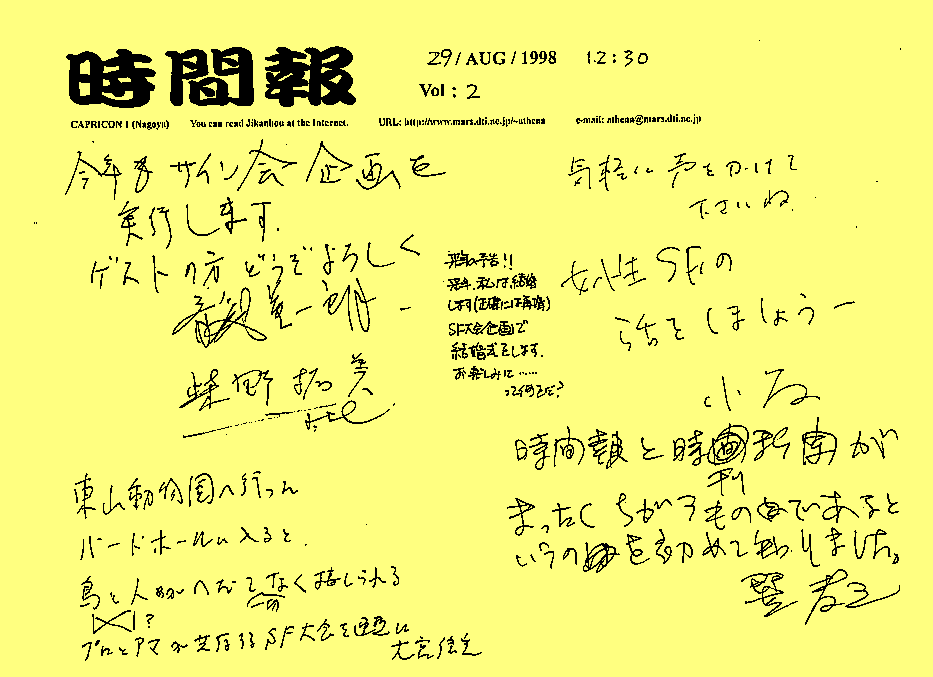 時間報
29/AUG/1998 12:30
Vol: 2
CAPRICON 1 (Nagoya) You can read Jikanhou at the Internet. URL: http://www.mars.dti.ne.jp/~athena e-mail: athena@mars.dti.ne.jp
今年もサイン会企画を
実行します.
ゲストの方どうぞよろしく
柴野拓美
気軽に声をかけて
下さいね.
女性SFの
話をしましょうー
予告!!
私は結婚
します(正確には再婚)
SF大会企画で
結婚式をします.
お楽しみに……
って何をだ?
時間報と時刊新聞が
まったくちがうものであると
いうのを初めて知りました。
東山動物園へ行ったん
バードホールに入ると.
鳥と人がへだてなく接しられる
?
プロとアマが共存するSF大会を